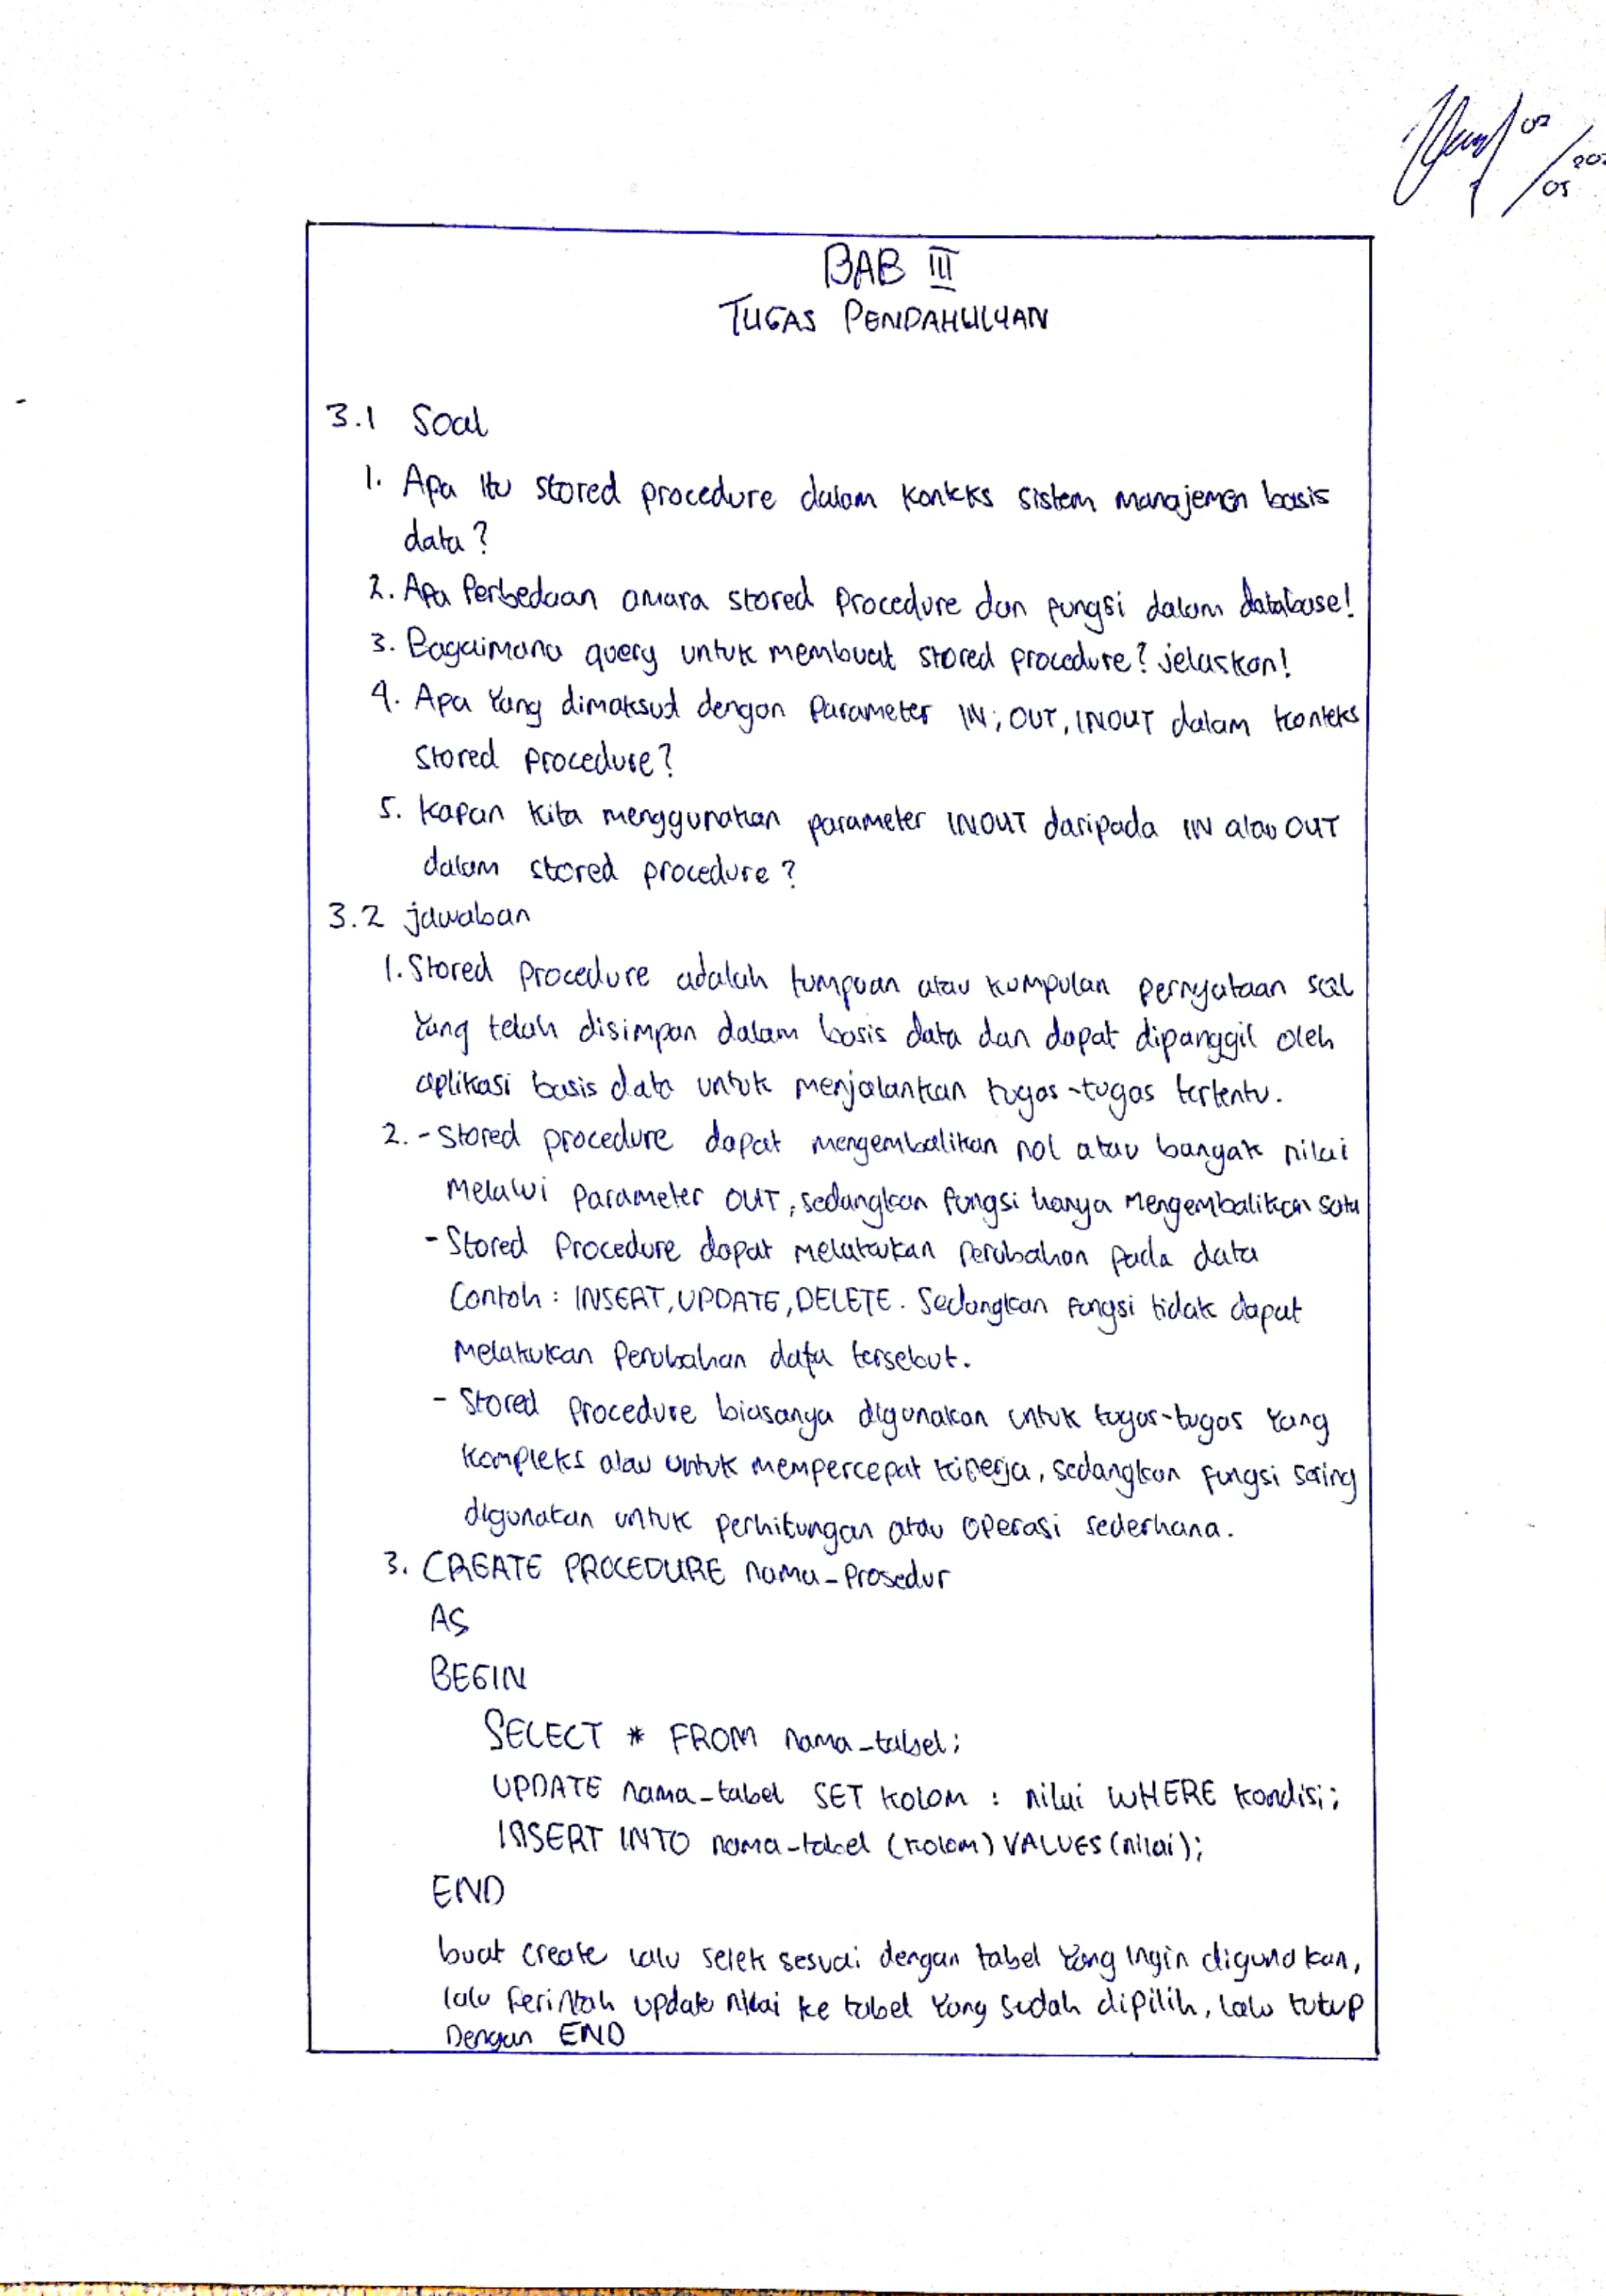 02
/ 202
05
BAB III
TUGAS PENDAHULUAN
3.1 Soal
1. Apa itu stored procedure dalam konteks sistem manajemen basis
data?
2. Apa Perbedaan antara stored Procedure dan fungsi dalam database!
3. Bagaimana query untuk membuat stored procedure? jelaskan!
4. Apa Yang dimaksud dengan Parameter IN, OUT, INOUT dalam konteks
stored procedure?
5. Kapan kita menggunakan parameter INOUT daripada IN atau OUT
dalam stored procedure?
3.2 jawaban
1. Stored Procedure adalah tumpuan atau kumpulan pernyataan SQL
Yang telah disimpan dalam basis data dan dapat dipanggil oleh
aplikasi basis data untuk menjalankan tugas-tugas tertentu.
2. - Stored procedure dapat mengembalikan nol atau banyak nilai
Melalui Parameter OUT, sedangkan fungsi hanya Mengembalikan satu
- Stored Procedure dapat melakukan Perubahan pada data
Contoh : INSERT, UPDATE, DELETE. Sedangkan fungsi tidak dapat
Melakukan Perubahan data tersebut.
- Stored Procedure biasanya digunakan untuk tugas-tugas Yang
kompleks atau untuk mempercepat kinerja, sedangkan fungsi sering
digunakan untuk perhitungan atau operasi sederhana.
3. CREATE PROCEDURE nama_Prosedur
AS
BEGIN
SELECT * FROM nama_tabel;
UPDATE nama_tabel SET kolom : nilai WHERE kondisi;
INSERT INTO nama_tabel (kolom) VALUES (nilai);
END
buat create lalu selek sesuai dengan tabel Yang ingin digunakan,
lalu Perintah update nilai ke tabel Yang sudah dipilih, lalu tutup
Dengan END